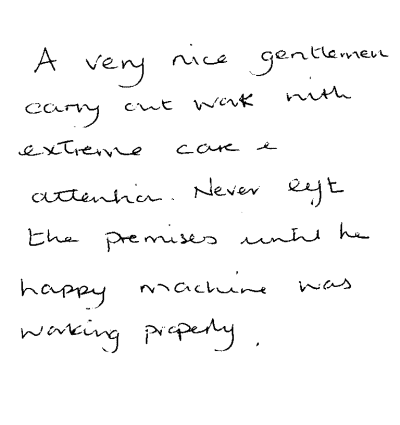 A very nice gentlemen
carry out work with
extreme care &
attention. Never left
the premises until he
happy machine was
working properly.